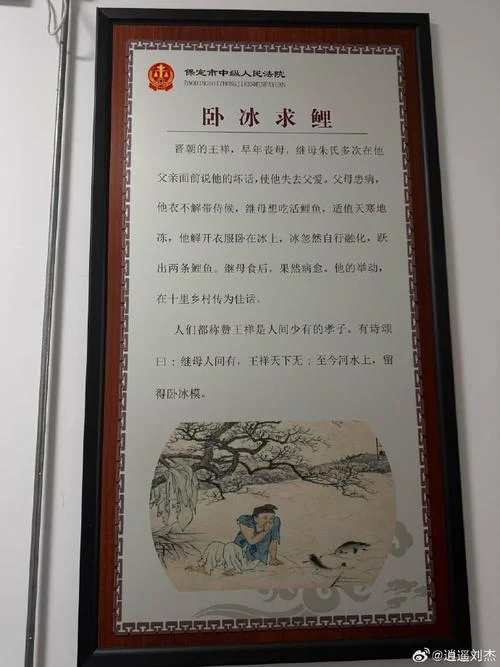 保定市中级人民法院
BAODINGSHIZHONGJIRENMINFAYUAN
卧冰求鲤
晋朝的王祥，早年丧母，继母朱氏多次在他
父亲面前说他的坏话，使他失去父爱。父母患病，
他衣不解带侍候，继母想吃活鲤鱼，适值天寒地
冻，他解开衣服卧在冰上，冰忽然自行融化，跃
出两条鲤鱼。继母食后，果然病愈。他的举动，
在十里乡村传为佳话。
人们都称赞王祥是人间少有的孝子。有诗颂
曰：继母人间有，王祥天下无；至今河水上，留
得卧冰模。
@逍遥刘杰